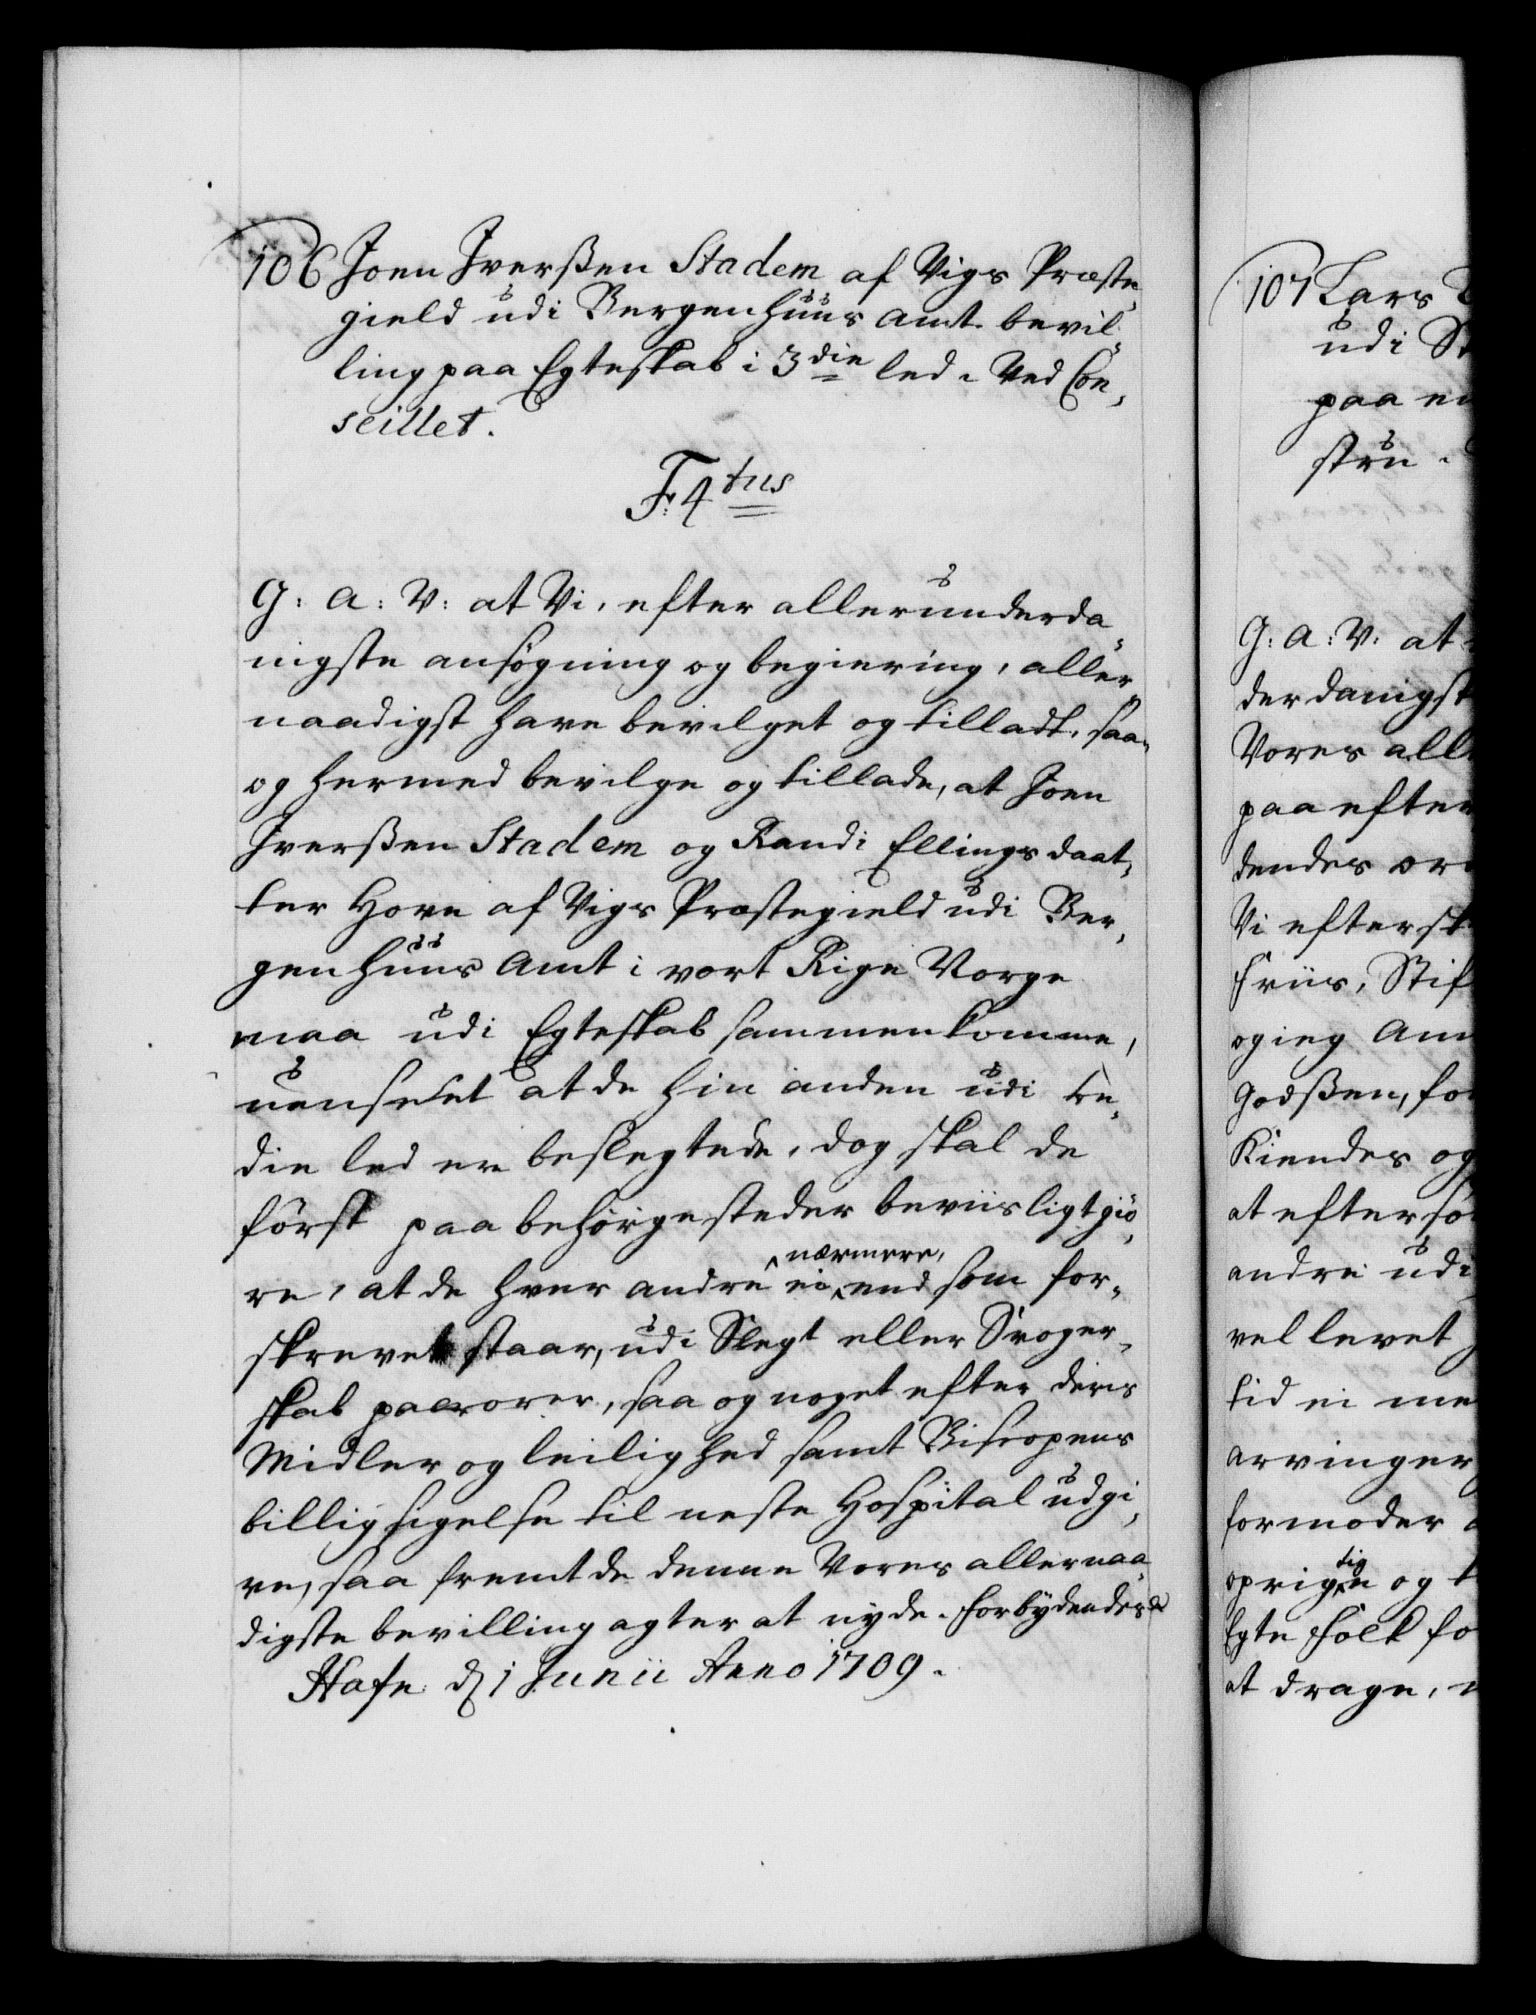 106 Joen Iverßen Stadem af Vigs Præste
gield udi Bergenhuus Amt bevil
ling paa Egteskab i 3die led. Ved Con,
seillet.
F: 4tus
G: A: V: at Vi, efter allerunderda
nigste ansøgning og begiering, aller
naadigst have bevilget og tilladt, saa
og hermed bevilge og tillade, at Joen
Iverßen Stadem og Randi Ellingsdaat,
ter Hove af Vigs Præstegield udi Ber,
genhuus Amt i vort Rige Norge
maa udi Egteskab sammenkomme,
uenseet at de hin anden udi tre,
die led ere beslegtede, dog skal de
først paa behørige steder beviisligt giø,
re, at de hver andre ei nærmere, end som for,
skrevet staar, udi Slegt eller Svoger,
skab paarører, saa og noget efter deris
Midler og leilighed samt Biscopens
billigsigelse til neste Hospital udgi,
ve, saa fremt de denne Vores allernaa
digste bevilling agter at nyde. Forbydendes
Hafn. d. 1 Junii Anno 1709.
107 Lars
udi
paa
stru.
G: A: V: at
derdanigst
Vores all
paa efter
dendes
Vi eftersk
Friis, Stif
og ieg Am
Godßen, for
Kiendes og
at efter
andre udi
vel levet
tid ei me
arvinger
formoder
oprigtig og
Egte Folk fo
at drage,